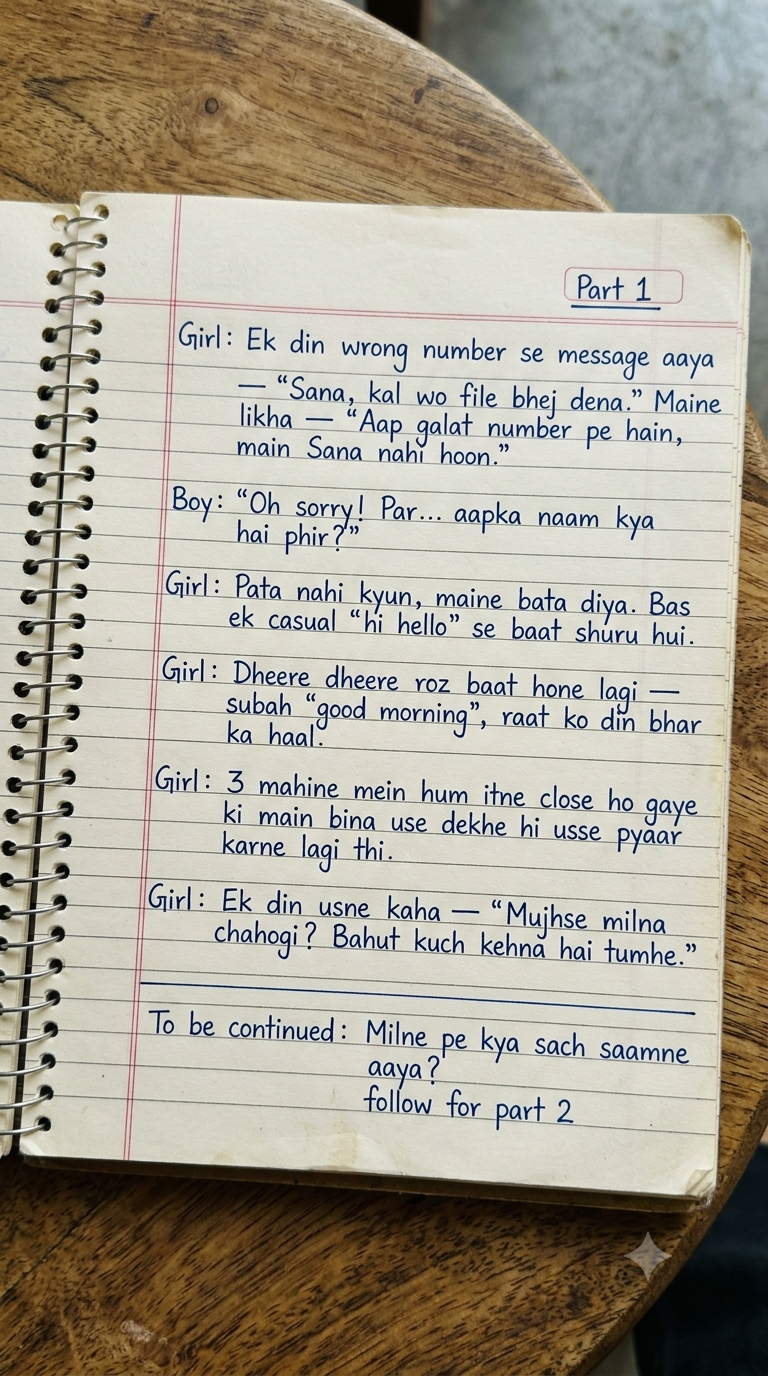 Part 1
Girl: Ek din wrong number se message aaya
— “Sana, kal wo file bhej dena.” Maine
likha — “Aap galat number pe hain,
main Sana nahi hoon.”
Boy: “Oh sorry! Par... aapka naam kya
hai phir?”
Girl: Pata nahi kyun, maine bata diya. Bas
ek casual “hi hello” se baat shuru hui.
Girl: Dheere dheere roz baat hone lagi —
subah “good morning”, raat ko din bhar
ka haal.
Girl: 3 mahine mein hum itne close ho gaye
ki main bina use dekhe hi usse pyaar
karne lagi thi.
Girl: Ek din usne kaha — “Mujhse milna
chahogi? Bahut kuch kehna hai tumhe.”
To be continued: Milne pe kya sach saamne
aaya?
follow for part 2